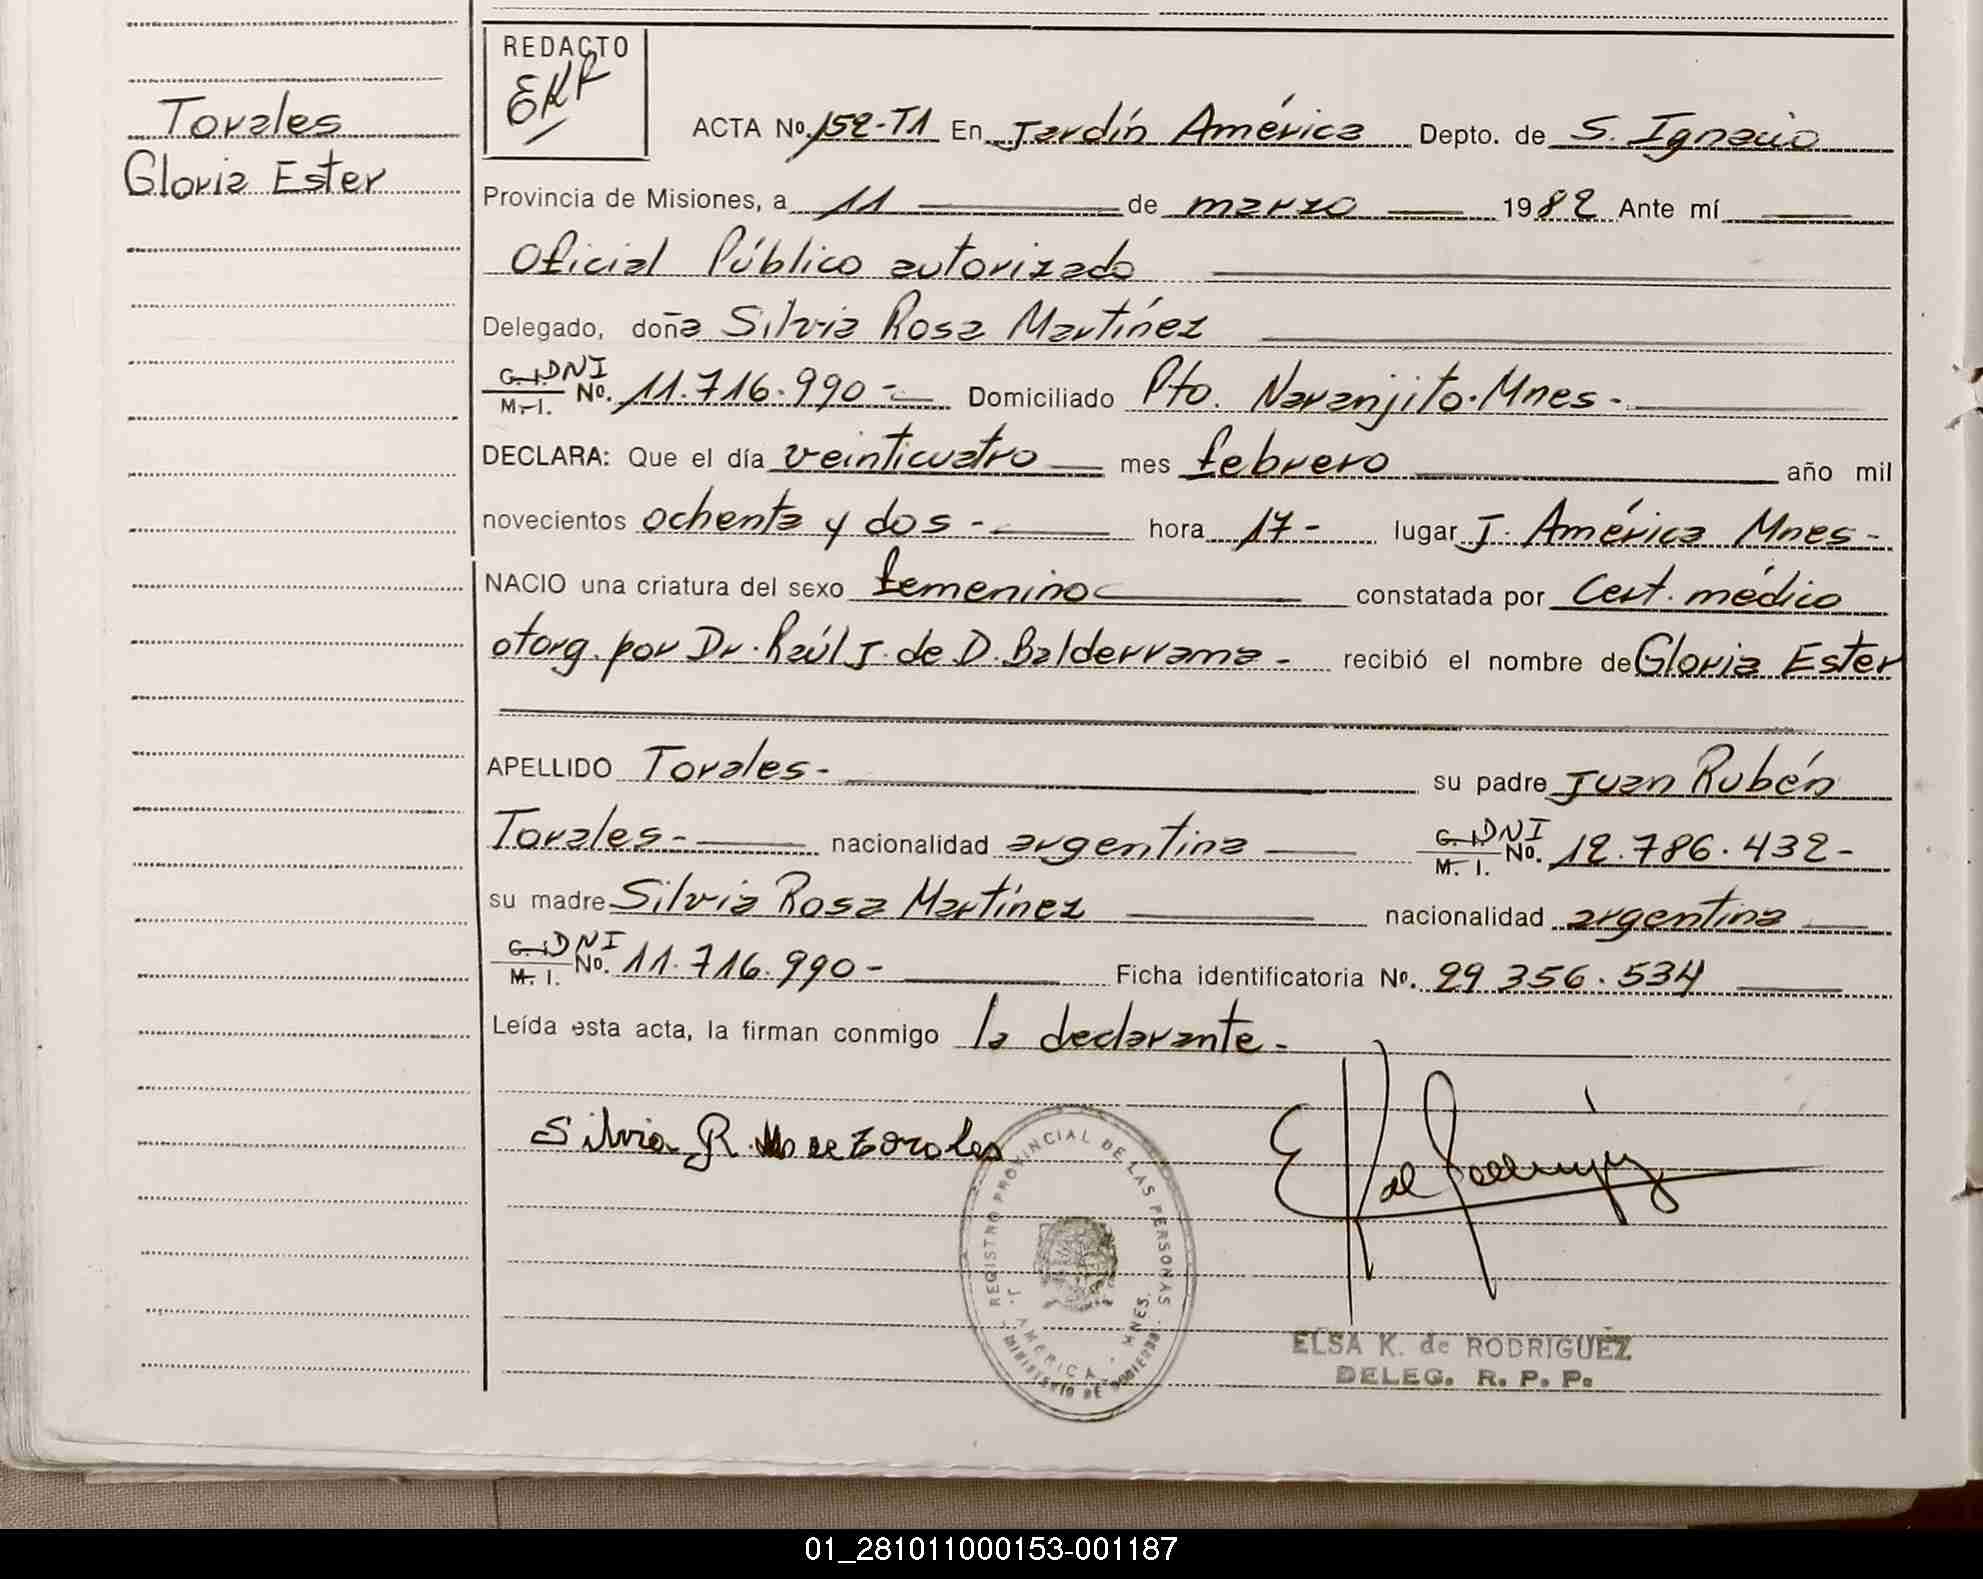 Torales
Gloria Ester
REDACTO
EKR
ACTA No. 152-T1 En Jardín América Depto. de S. Ignacio
Provincia de Misiones, a 11 de marzo 1982 Ante mí
Oficial Público autorizado
Delegado, doña Silvia Rosa Martínez
C.I. DNI
M. I. No. 11.716.990- Domiciliado Pto. Naranjito. Mnes-
DECLARA: Que el día veinticuatro mes febrero año mil
novecientos ochenta y dos- hora 17- lugar J. América Mnes-
NACIO una criatura del sexo femenino constatada por Cert. médico
otorg. por Dr. Raúl J. de D. Balderrama- recibió el nombre de Gloria Ester
APELLIDO Torales- su padre Juan Rubén
Torales- nacionalidad argentina C.I. DNI M. I. No. 12.786.432-
su madre Silvia Rosa Martínez nacionalidad argentina
C.I. DNI
M. I. No. 11.716.990- Ficha identificatoria No. 29 356.534
Leída esta acta, la firman conmigo la declarante-
Silvia R. M de Torales
EK de Rodríguez
REGISTRO PROVINCIAL DE LAS PERSONAS
J. AMERICA - MNES.
MINISTERIO DE GOBIERNO
ELSA K. de RODRIGUEZ
DELEG. R. P. P.
01_281011000153-001187